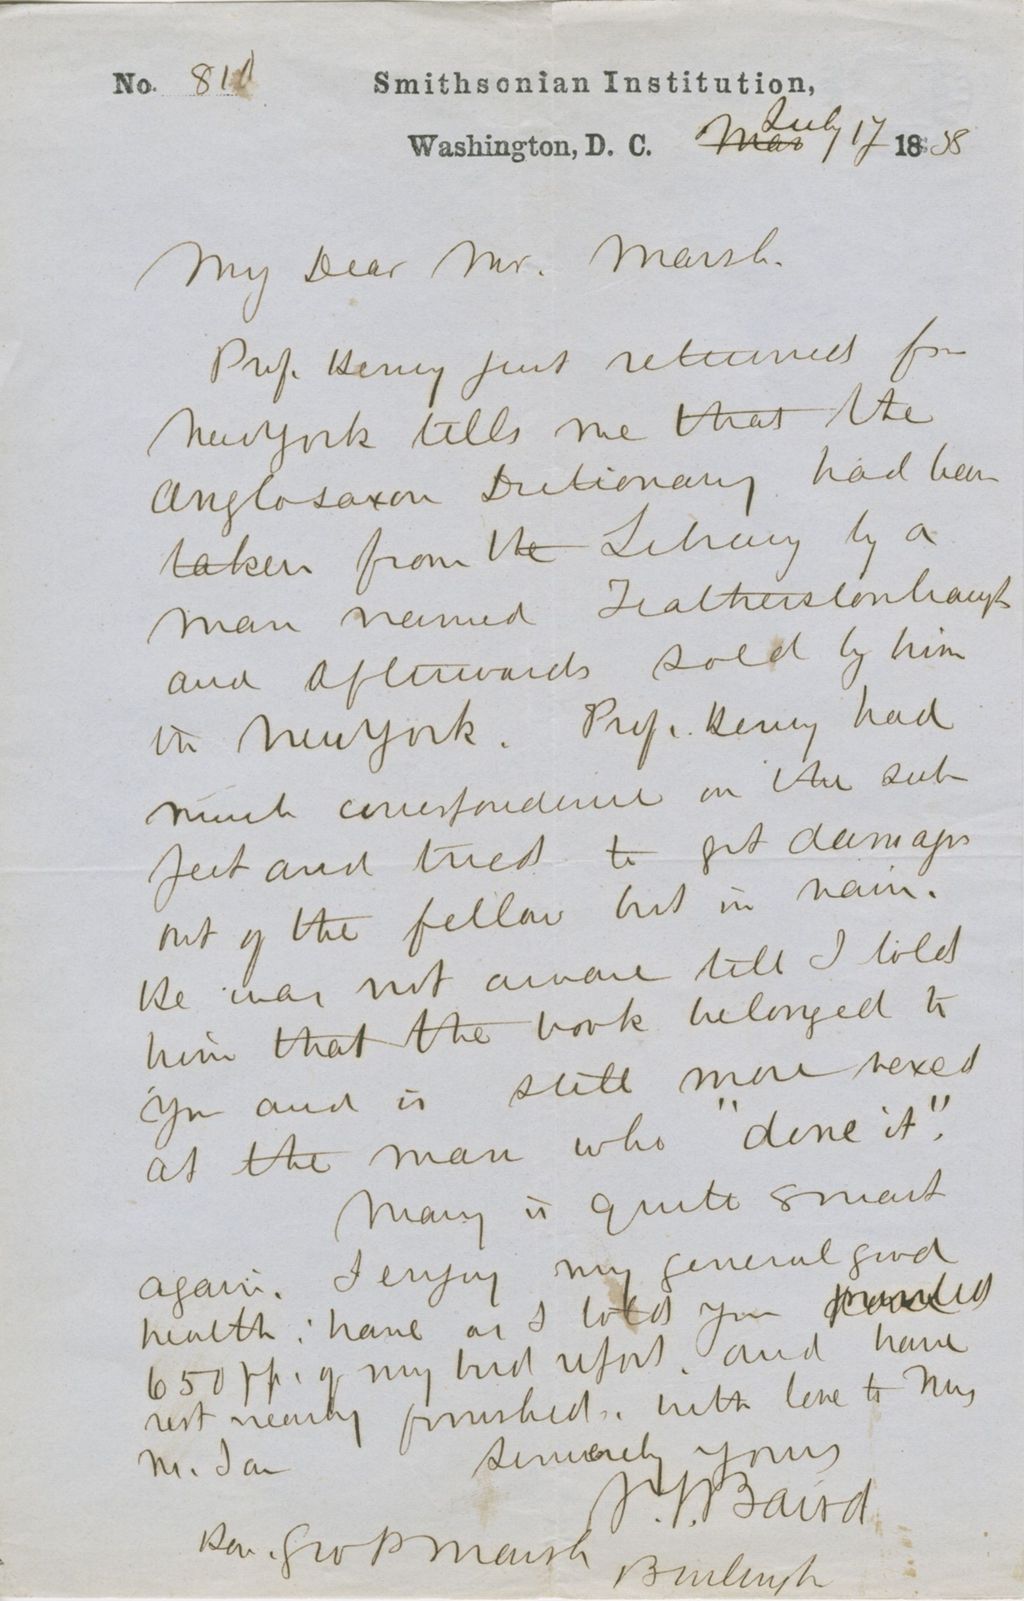 No. 810 Smithsonian Institution,
Washington, D. C. Mar July 17 1858
My Dear Mr. Marsh.
Prof. Henry just returned from
New York tells me that the
Anglosaxon Dictionary had been
taken from the Library by a
man named Featherstonhaugh
and afterwards sold by him
in New York. Prof. Henry had
much correspondence on the sub
ject and tried to get damages
out of the fellow but in vain.
He was not aware till I told
him that the book belonged to
you and is still more vexed
at the man who "done it".
Mary is quite smart
again. I enjoy my general good
health; have as I told you printed
650 pp. of my bird report. and have
rest nearly finished. with love to Mrs
M. I am Sincerely yours
S. F. Baird
Hon. Geo P Marsh
Burlington